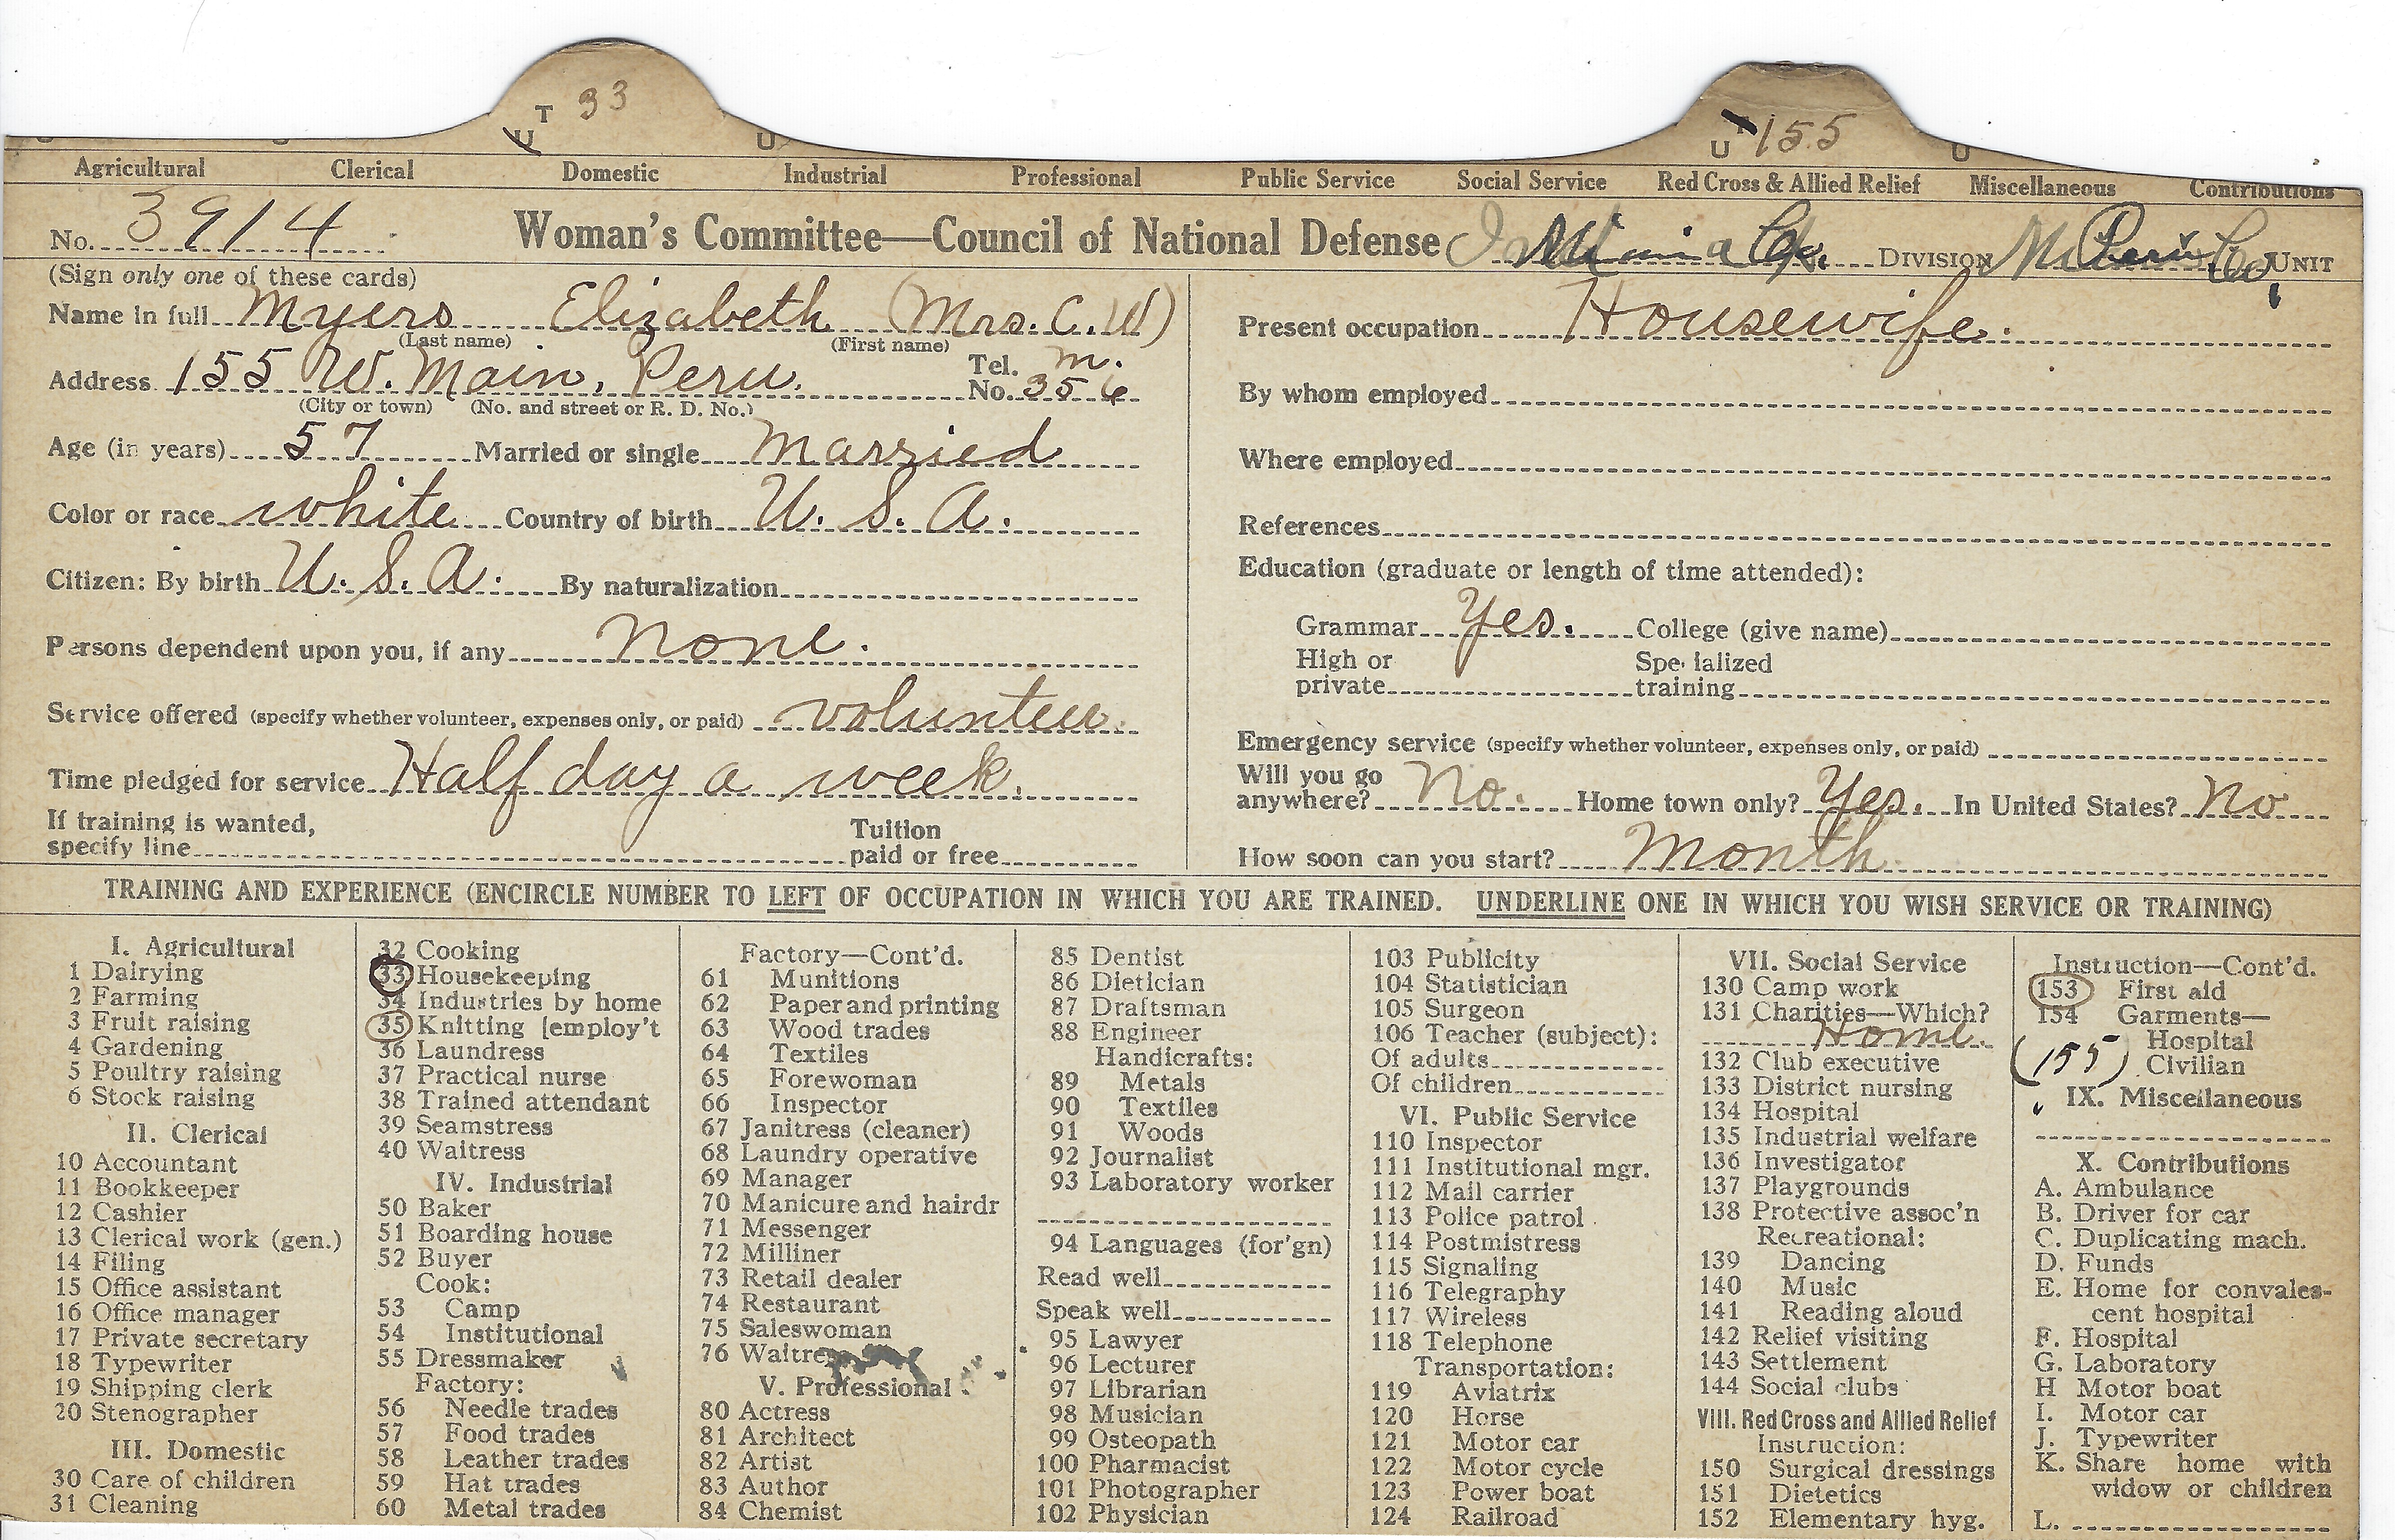 T 33
U
U
T 155
U
U
Agricultural Clerical Domestic Industrial Professional Public Service Social Service Red Cross & Allied Relief Miscellaneous Contributions
No. 3914 Woman's Committee—Council of National Defense Miami Co. DIVISION Peru UNIT
(Sign only one of these cards)
Name in full Myers Elizabeth (Mrs. C. W)
(Last name) (First name)
Address 155 W. Main, Peru. Tel. No. M. 356
(City or town) (No. and street or R. D. No.)
Age (in years) 57 Married or single Married
Color or race white Country of birth U. S. A.
Citizen: By birth U. S. A. By naturalization
Persons dependent upon you, if any none.
Service offered (specify whether volunteer, expenses only, or paid) volunteer.
Time pledged for service Half day a week.
If training is wanted,
specify line Tuition paid or free
Present occupation Housewife.
By whom employed
Where employed
References
Education (graduate or length of time attended):
Grammar Yes. College (give name)
High or private Specialized training
Emergency service (specify whether volunteer, expenses only, or paid)
Will you go anywhere? No. Home town only? Yes. In United States? No
How soon can you start? Month
TRAINING AND EXPERIENCE (ENCIRCLE NUMBER TO LEFT OF OCCUPATION IN WHICH YOU ARE TRAINED. UNDERLINE ONE IN WHICH YOU WISH SERVICE OR TRAINING)
I. Agricultural
1 Dairying
2 Farming
3 Fruit raising
4 Gardening
5 Poultry raising
6 Stock raising
II. Clerical
10 Accountant
11 Bookkeeper
12 Cashier
13 Clerical work (gen.)
14 Filing
15 Office assistant
16 Office manager
17 Private secretary
18 Typewriter
19 Shipping clerk
20 Stenographer
III. Domestic
30 Care of children
31 Cleaning
32 Cooking
33 Housekeeping
34 Industries by home
35 Knitting [employ't
36 Laundress
37 Practical nurse
38 Trained attendant
39 Seamstress
40 Waitress
IV. Industrial
50 Baker
51 Boarding house
52 Buyer
Cook:
53 Camp
54 Institutional
55 Dressmaker
Factory:
56 Needle trades
57 Food trades
58 Leather trades
59 Hat trades
60 Metal trades
Factory—Cont'd.
61 Munitions
62 Paper and printing
63 Wood trades
64 Textiles
65 Forewoman
66 Inspector
67 Janitress (cleaner)
68 Laundry operative
69 Manager
70 Manicure and hairdr
71 Messenger
72 Milliner
73 Retail dealer
74 Restaurant
75 Saleswoman
76 Waitress
V. Professional
80 Actress
81 Architect
82 Artist
83 Author
84 Chemist
85 Dentist
86 Dietician
87 Draftsman
88 Engineer
Handicrafts:
89 Metals
90 Textiles
91 Woods
92 Journalist
93 Laboratory worker
94 Languages (for'gn)
Read well
Speak well
95 Lawyer
96 Lecturer
97 Librarian
98 Musician
99 Osteopath
100 Pharmacist
101 Photographer
102 Physician
103 Publicity
104 Statistician
105 Surgeon
106 Teacher (subject):
Of adults
Of children
VI. Public Service
110 Inspector
111 Institutional mgr.
112 Mail carrier
113 Police patrol
114 Postmistress
115 Signaling
116 Telegraphy
117 Wireless
118 Telephone
Transportation:
119 Aviatrix
120 Horse
121 Motor car
122 Motor cycle
123 Power boat
124 Railroad
VII. Social Service
130 Camp work
131 Charities—Which?
Home.
132 Club executive
133 District nursing
134 Hospital
135 Industrial welfare
136 Investigator
137 Playgrounds
138 Protective assoc'n
Recreational:
139 Dancing
140 Music
141 Reading aloud
142 Relief visiting
143 Settlement
144 Social clubs
VIII. Red Cross and Allied Relief
Instruction:
150 Surgical dressings
151 Dietetics
152 Elementary hyg.
Instruction—Cont'd.
153 First aid
154 Garments—
Hospital
(155) Civilian
IX. Miscellaneous
X. Contributions
A. Ambulance
B. Driver for car
C. Duplicating mach.
D. Funds
E. Home for convales-
cent hospital
F. Hospital
G. Laboratory
H Motor boat
I. Motor car
J. Typewriter
K. Share home with
widow or children
L.